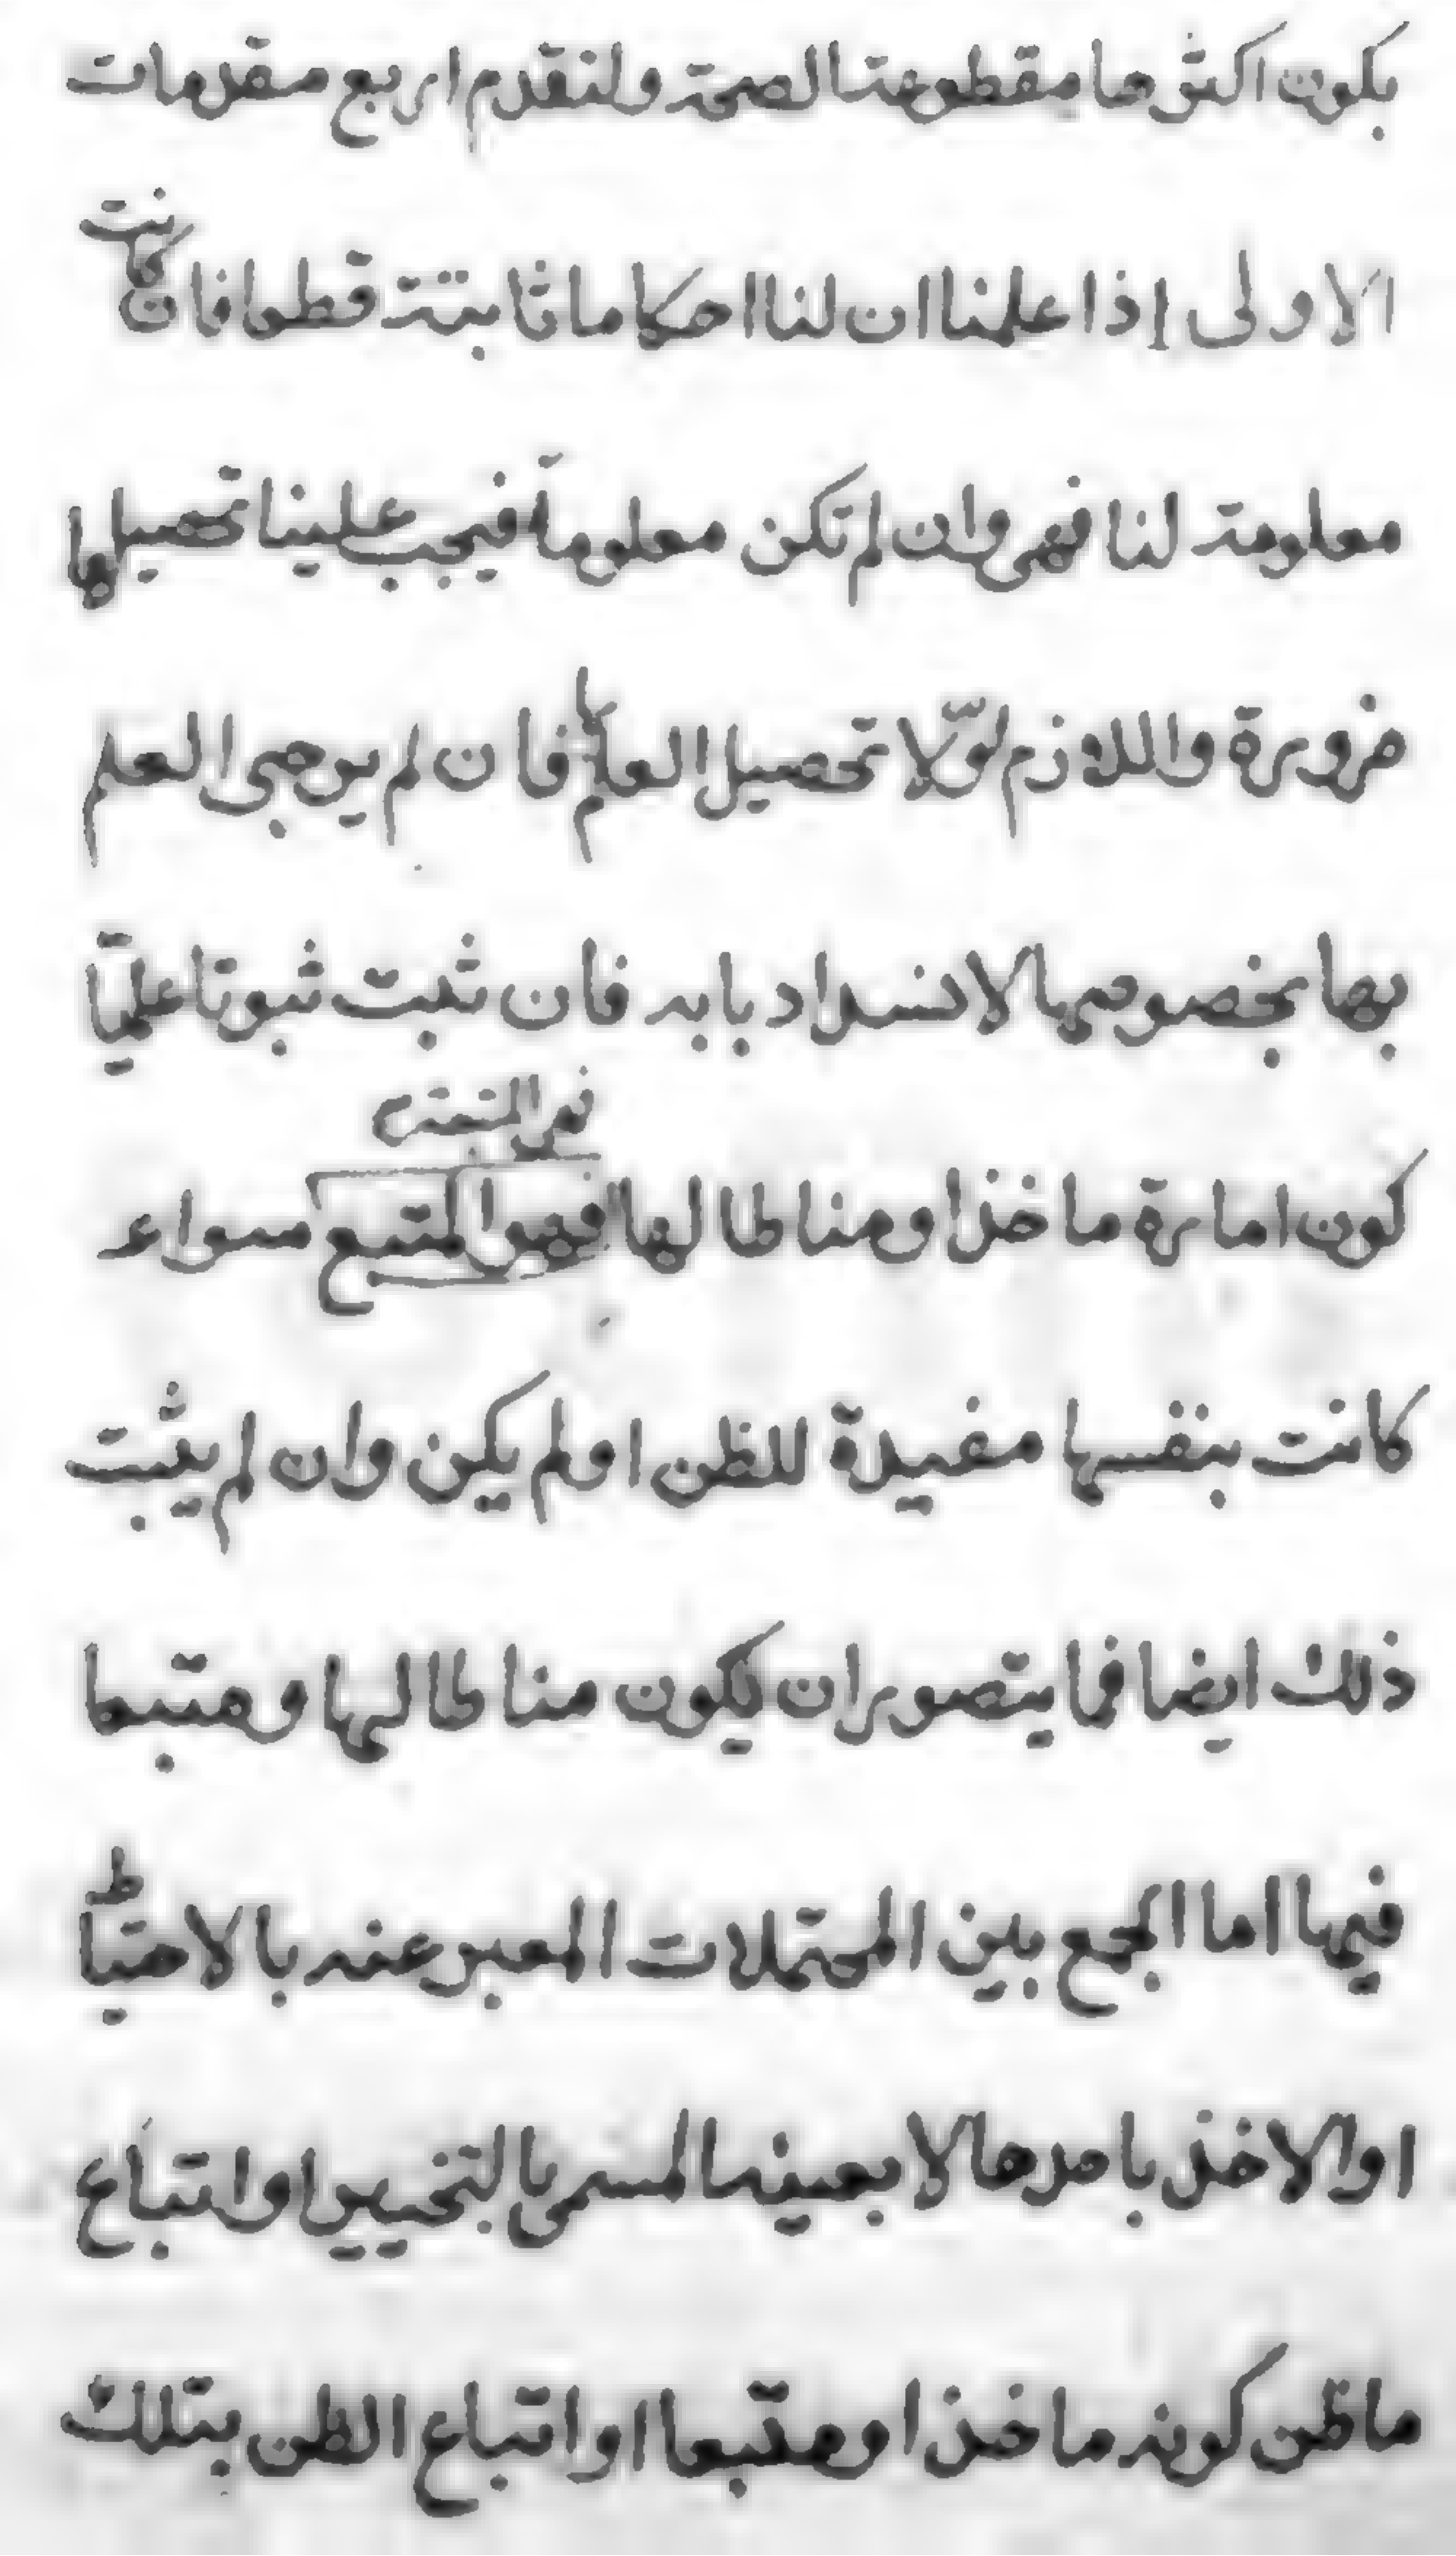 يكون اكثرها مقطوعة الصحة ولنقدم اربع مقدمات
الاولى إذا علمنا ان لنا احكاما ثابتة قطعا فان كانت
معلومة لنا فهى وان لم تكن معلومة فيجب علينا تحصيلها
ضرورة واللازم اوّلا تحصيل العلم فان لم يرجى العلم
بها بخصوصها لانسداد بابه فان ثبت ثبوتا علميّا
كون امارة ماخذا ومناطا لها فهو المتبع سواء
كانت بنفسها مفيدة للظن او لم يكن وان لم يثبت
ذلك ايضا فما يتصور ان يكون مناطا لها ومتبعا
فيها اما الجمع بين المحتملات المعبر عنه بالاحتياط
او الاخذ باحدها لا بعينها المسمى بالتخيير او اتباع
ما ظن كونه ماخذا ومتبعا او اتباع الظن بتلك